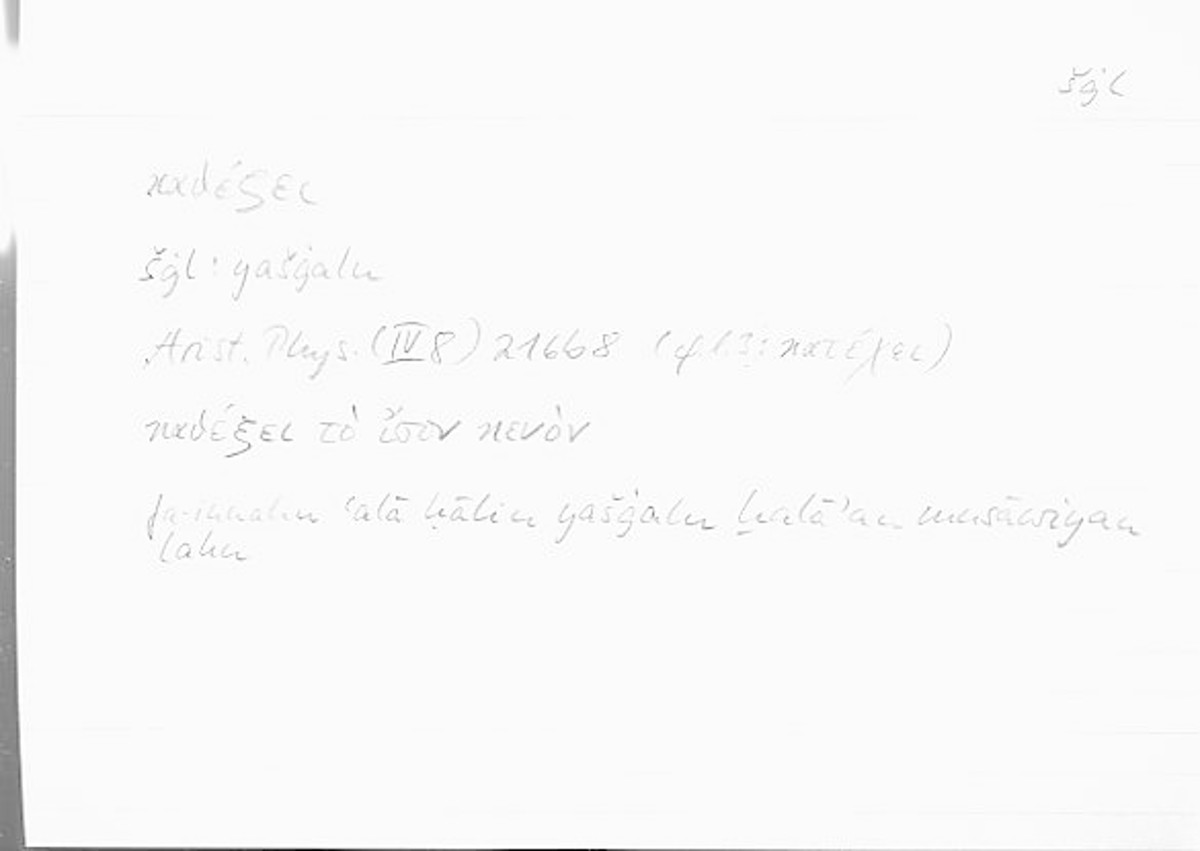 šġl
καθέξει
šġl : yašġalu
Arist. Phys. (IV 8) 216b8 ( : κατέχει)
καθέξει τὸ ἴσον κενὸν
fa-innahu ʿalā ḥālin yašġalu ḫalāʾan musāwiyan
lahu